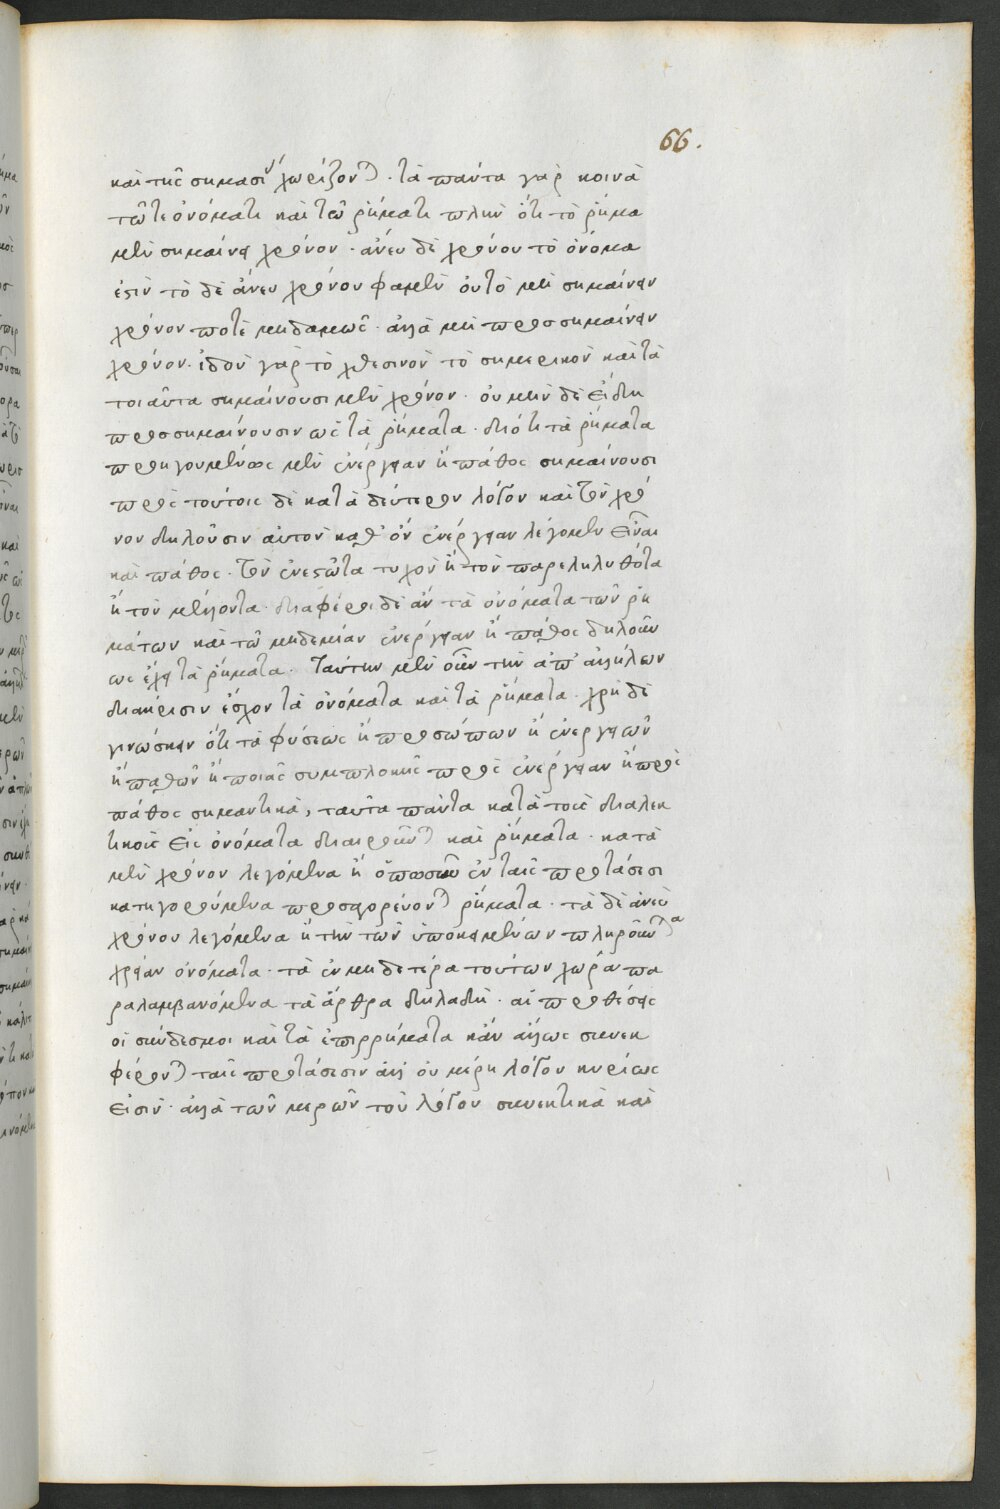 66.
καὶ τῆς σημασί χωρίζον). τὰ πάντα γὰρ κοινὰ
τῶ τε ὀνόματι καὶ τῶ ῥήματι πλὴν ὅτι τὸ ῥῆμα
μὲν σημαίνει χρόνον· ἄνευ δὲ χρόνου τὸ ὀνόμα
ἐστὶν τὸ δὲ ἄνευ χρόνου φαμὲν οὐ τὸ μὴ σημαίνειν
χρόνον ποτὲ μηδαμῶς· ἀλλὰ μὴ προσσημαίνειν
χρόνον· ἰδοὺ γὰρ τὸ χθεσινὸν τὸ σημερινὸν καὶ τὰ
τοιαῦτα σημαίνουσι μὲν χρόνον· οὐ μὴν δὲ εἴδη
προσσημαίνουσιν ὡς τὰ ῥήματα· διότι τὰ ῥήματα
προηγουμένως μὲν ἐνέργειαν ἢ πάθος σημαίνουσι
πρὸς τούτοις δὲ κατὰ δεύτερον λόγον καὶ τὸν χρό
νον δηλοῦσιν αὐτὸν καθ' ὃν ἐνέργειαν λέγομεν εἶναι
καὶ πάθος· τὸν ἐνεστῶτα τυχὸν ἢ τὸν παρεληλυθότα
ἢ τὸν μέλλοντα· διαφέροι δὲ ἂν τὰ ὀνόματα τῶν ῥη
μάτων καὶ τῶ μηδεμίαν ἐνέργειαν ἢ πάθος δηλοῦν
ὡς ἔχει τὰ ῥήματα. Ταύτην μὲν οὖν τὴν ἀπ' ἀλλήλων
διαίρεσιν ἔσχον τὰ ὀνόματα καὶ τὰ ῥήματα· χρὴ δὲ
γινώσκειν ὅτι τὰ φύσεως ἢ προσώπων ἢ ἐνεργειῶν
ἢ παθῶν ἢ ποιᾶς συμπλοκῆς πρὸς ἐνέργειαν ἢ πρὸς
πάθος σημαντικὰ, ταῦτα πάντα κατὰ τοὺς διαλεκ
τικοὺς εἰς ὀνόματα διαιροῦν) καὶ ῥήματα· κατὰ
μὲν χρόνον λεγόμενα ἢ ὁπωσοῦν ἐν ταῖς προτάσεσι
κατηγορούμενα προσαγορεύον) ῥήματα· τὰ δὲ ἄνευ
χρόνου λεγόμενα ἢ τὴν τῶν ὑποκειμένων πληροῦντα
χρείαν ὀνόματα· τὰ ἐν μηδετέρα τούτων χώρα πα
ραλαμβανόμενα τὰ ἄρθρα δηλαδὴ· αἱ προθέσεις
οἱ σύνδεσμοι καὶ τὰ ἐπιρρήματα κἂν ἄλλως συνεκ
φέρον) ταῖς προτάσεσιν ἀλλ' οὐ μέρη λόγου κυρίως
εἰσὶν· ἀλλὰ τῶν μερῶν τοῦ λόγου συνεκτικὰ καὶ